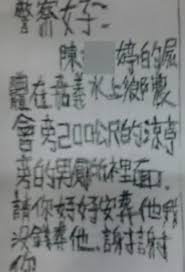 警察好子:
陳 婷的屍
體在嘉義水上鄉農
會旁200公尺的涼亭
旁的男廁所裡面.
請你好好安葬他我
沒錢葬他…謝謝
你